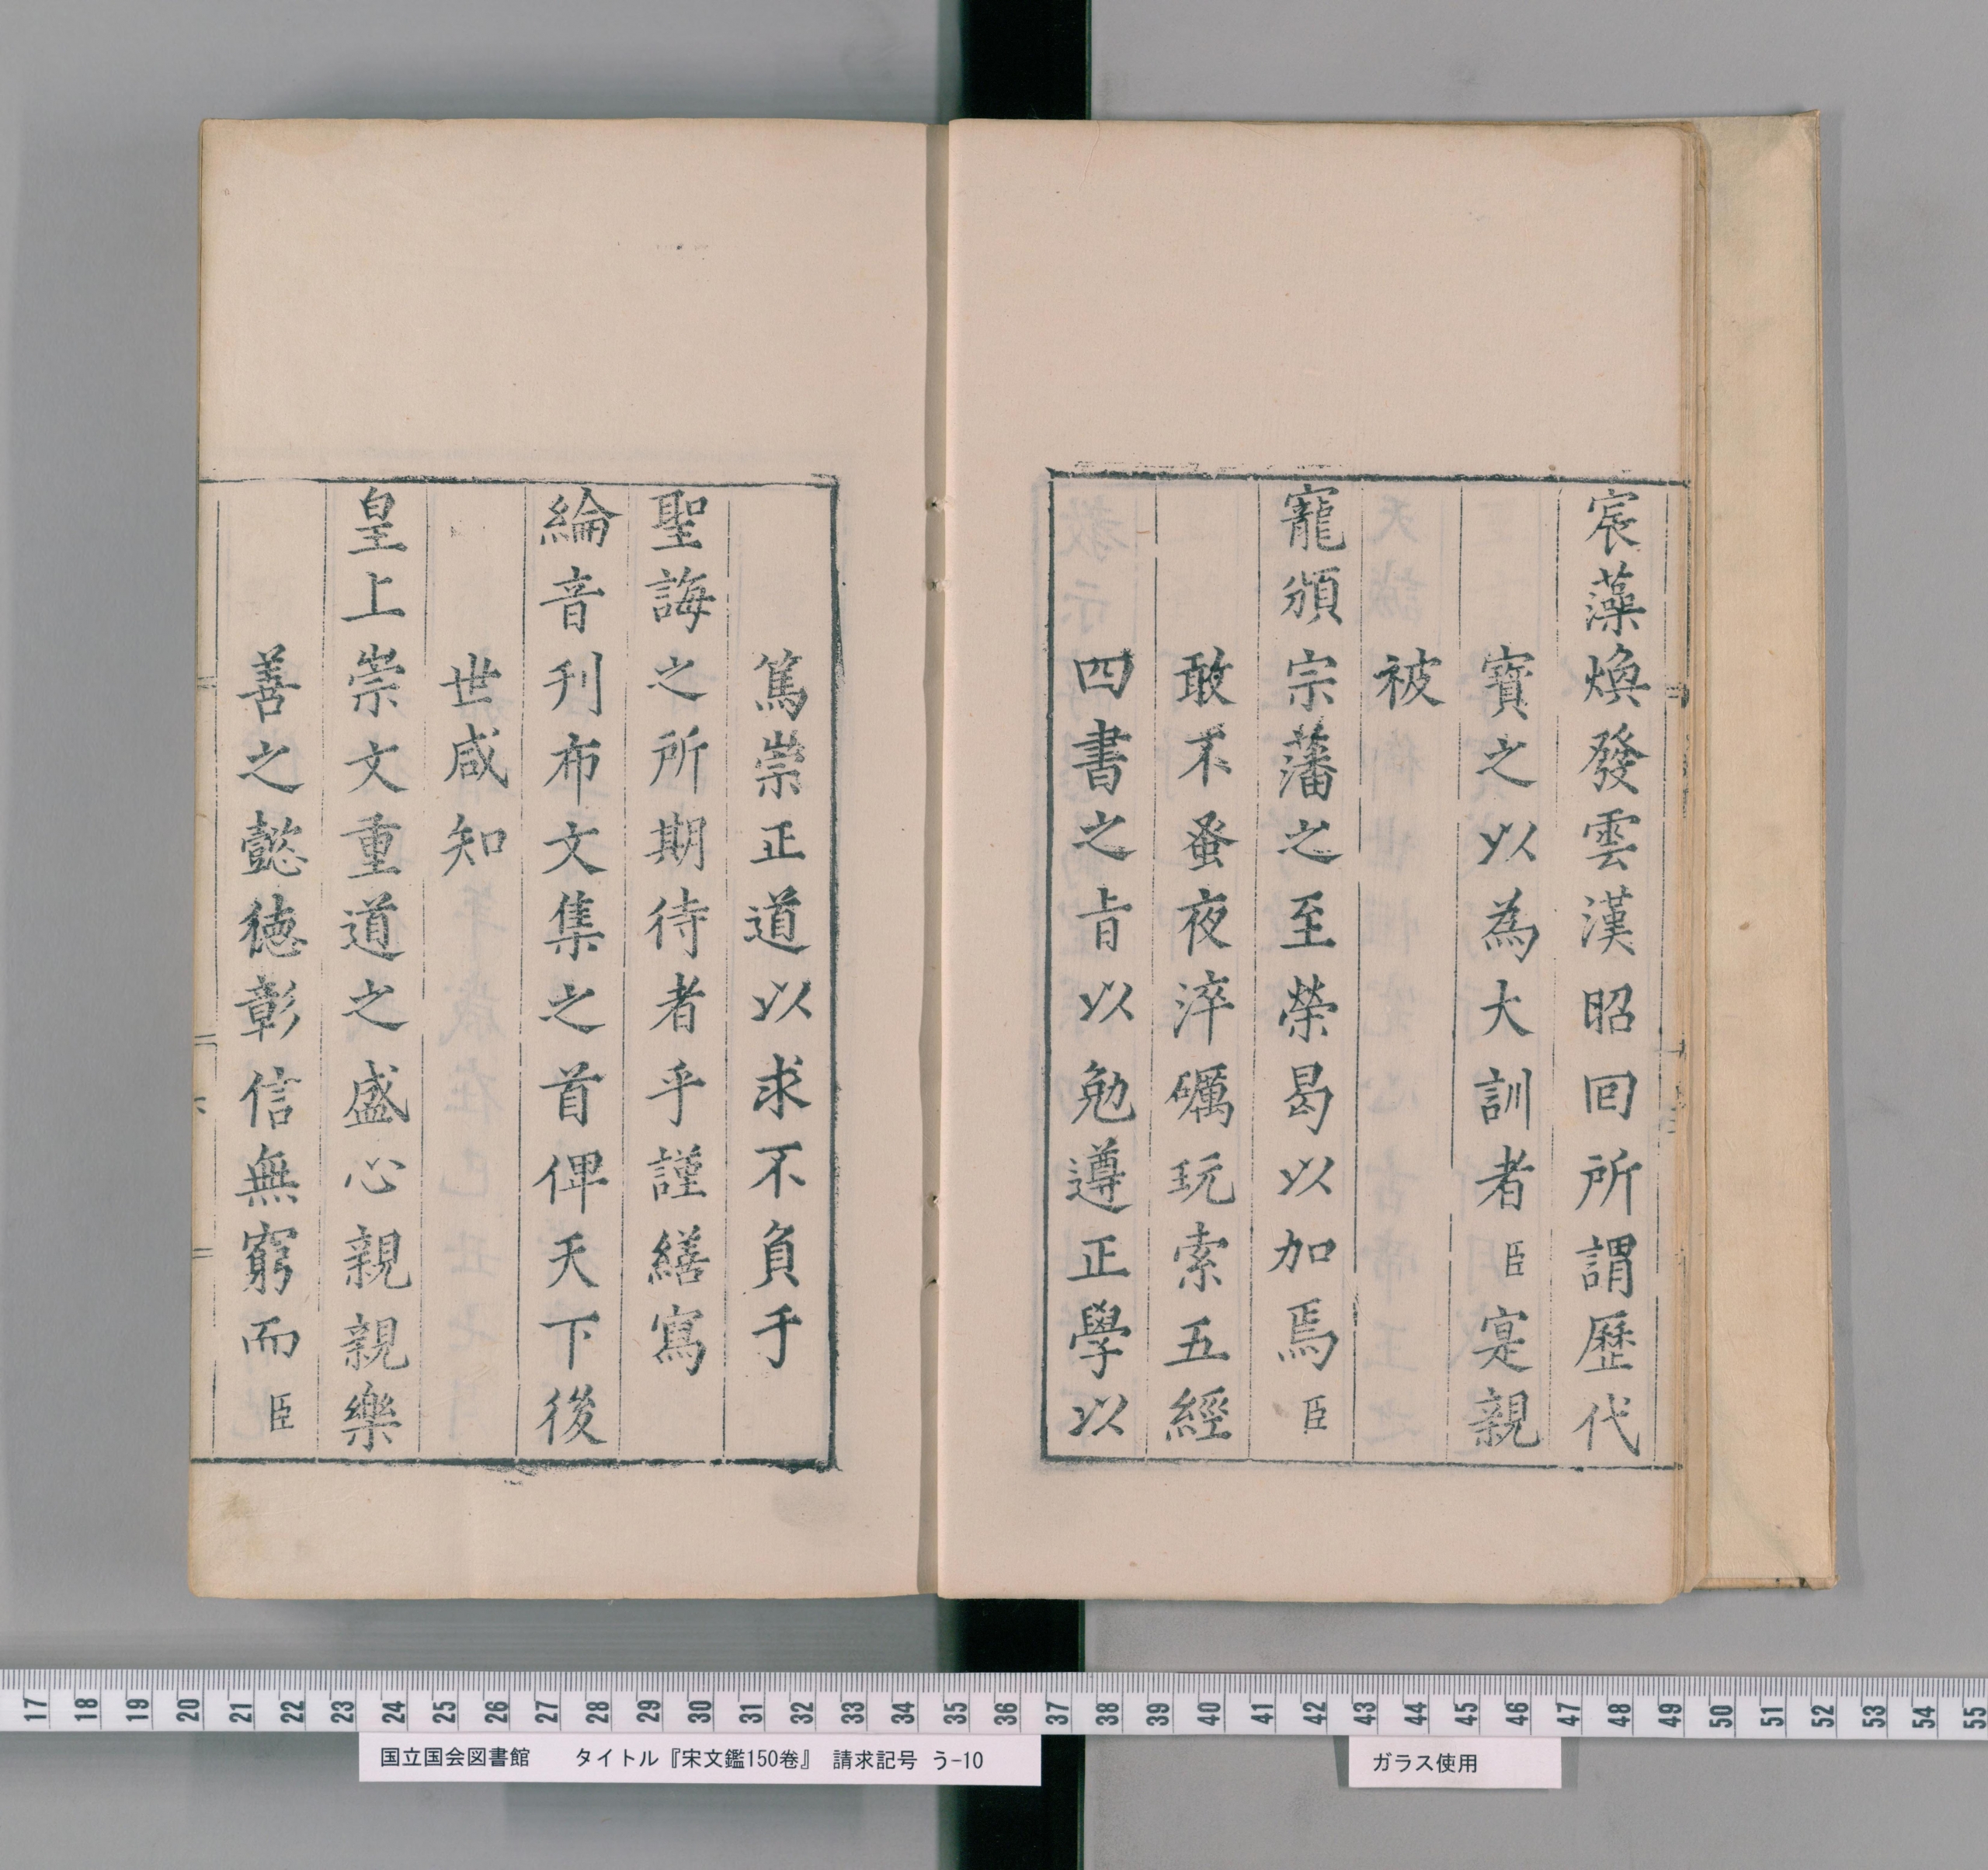 宸藻煥發雲漢昭回所謂歷代
寳之以為大訓者臣寔親
被
寵頒宗藩之至榮曷以加焉臣
敢不蚤夜淬礪玩索五經
四書之旨以勉遵正學以
篤崇正道以求不負乎
聖誨之所期待者乎謹繕寫
綸音刋布文集之首俾天下後
世咸知
皇上崇文重道之盛心親親樂
善之懿徳彰信無窮而臣
17 18 19 20 21 22 23 24 25 26 27 28 29 30 31 32 33 34 35 36 37 38 39 40 41 42 43 44 45 46 47 48 49 50 51 52 53 54 55
国立国会図書館 タイトル『宋文鑑150巻』 請求記号 う-10
ガラス使用